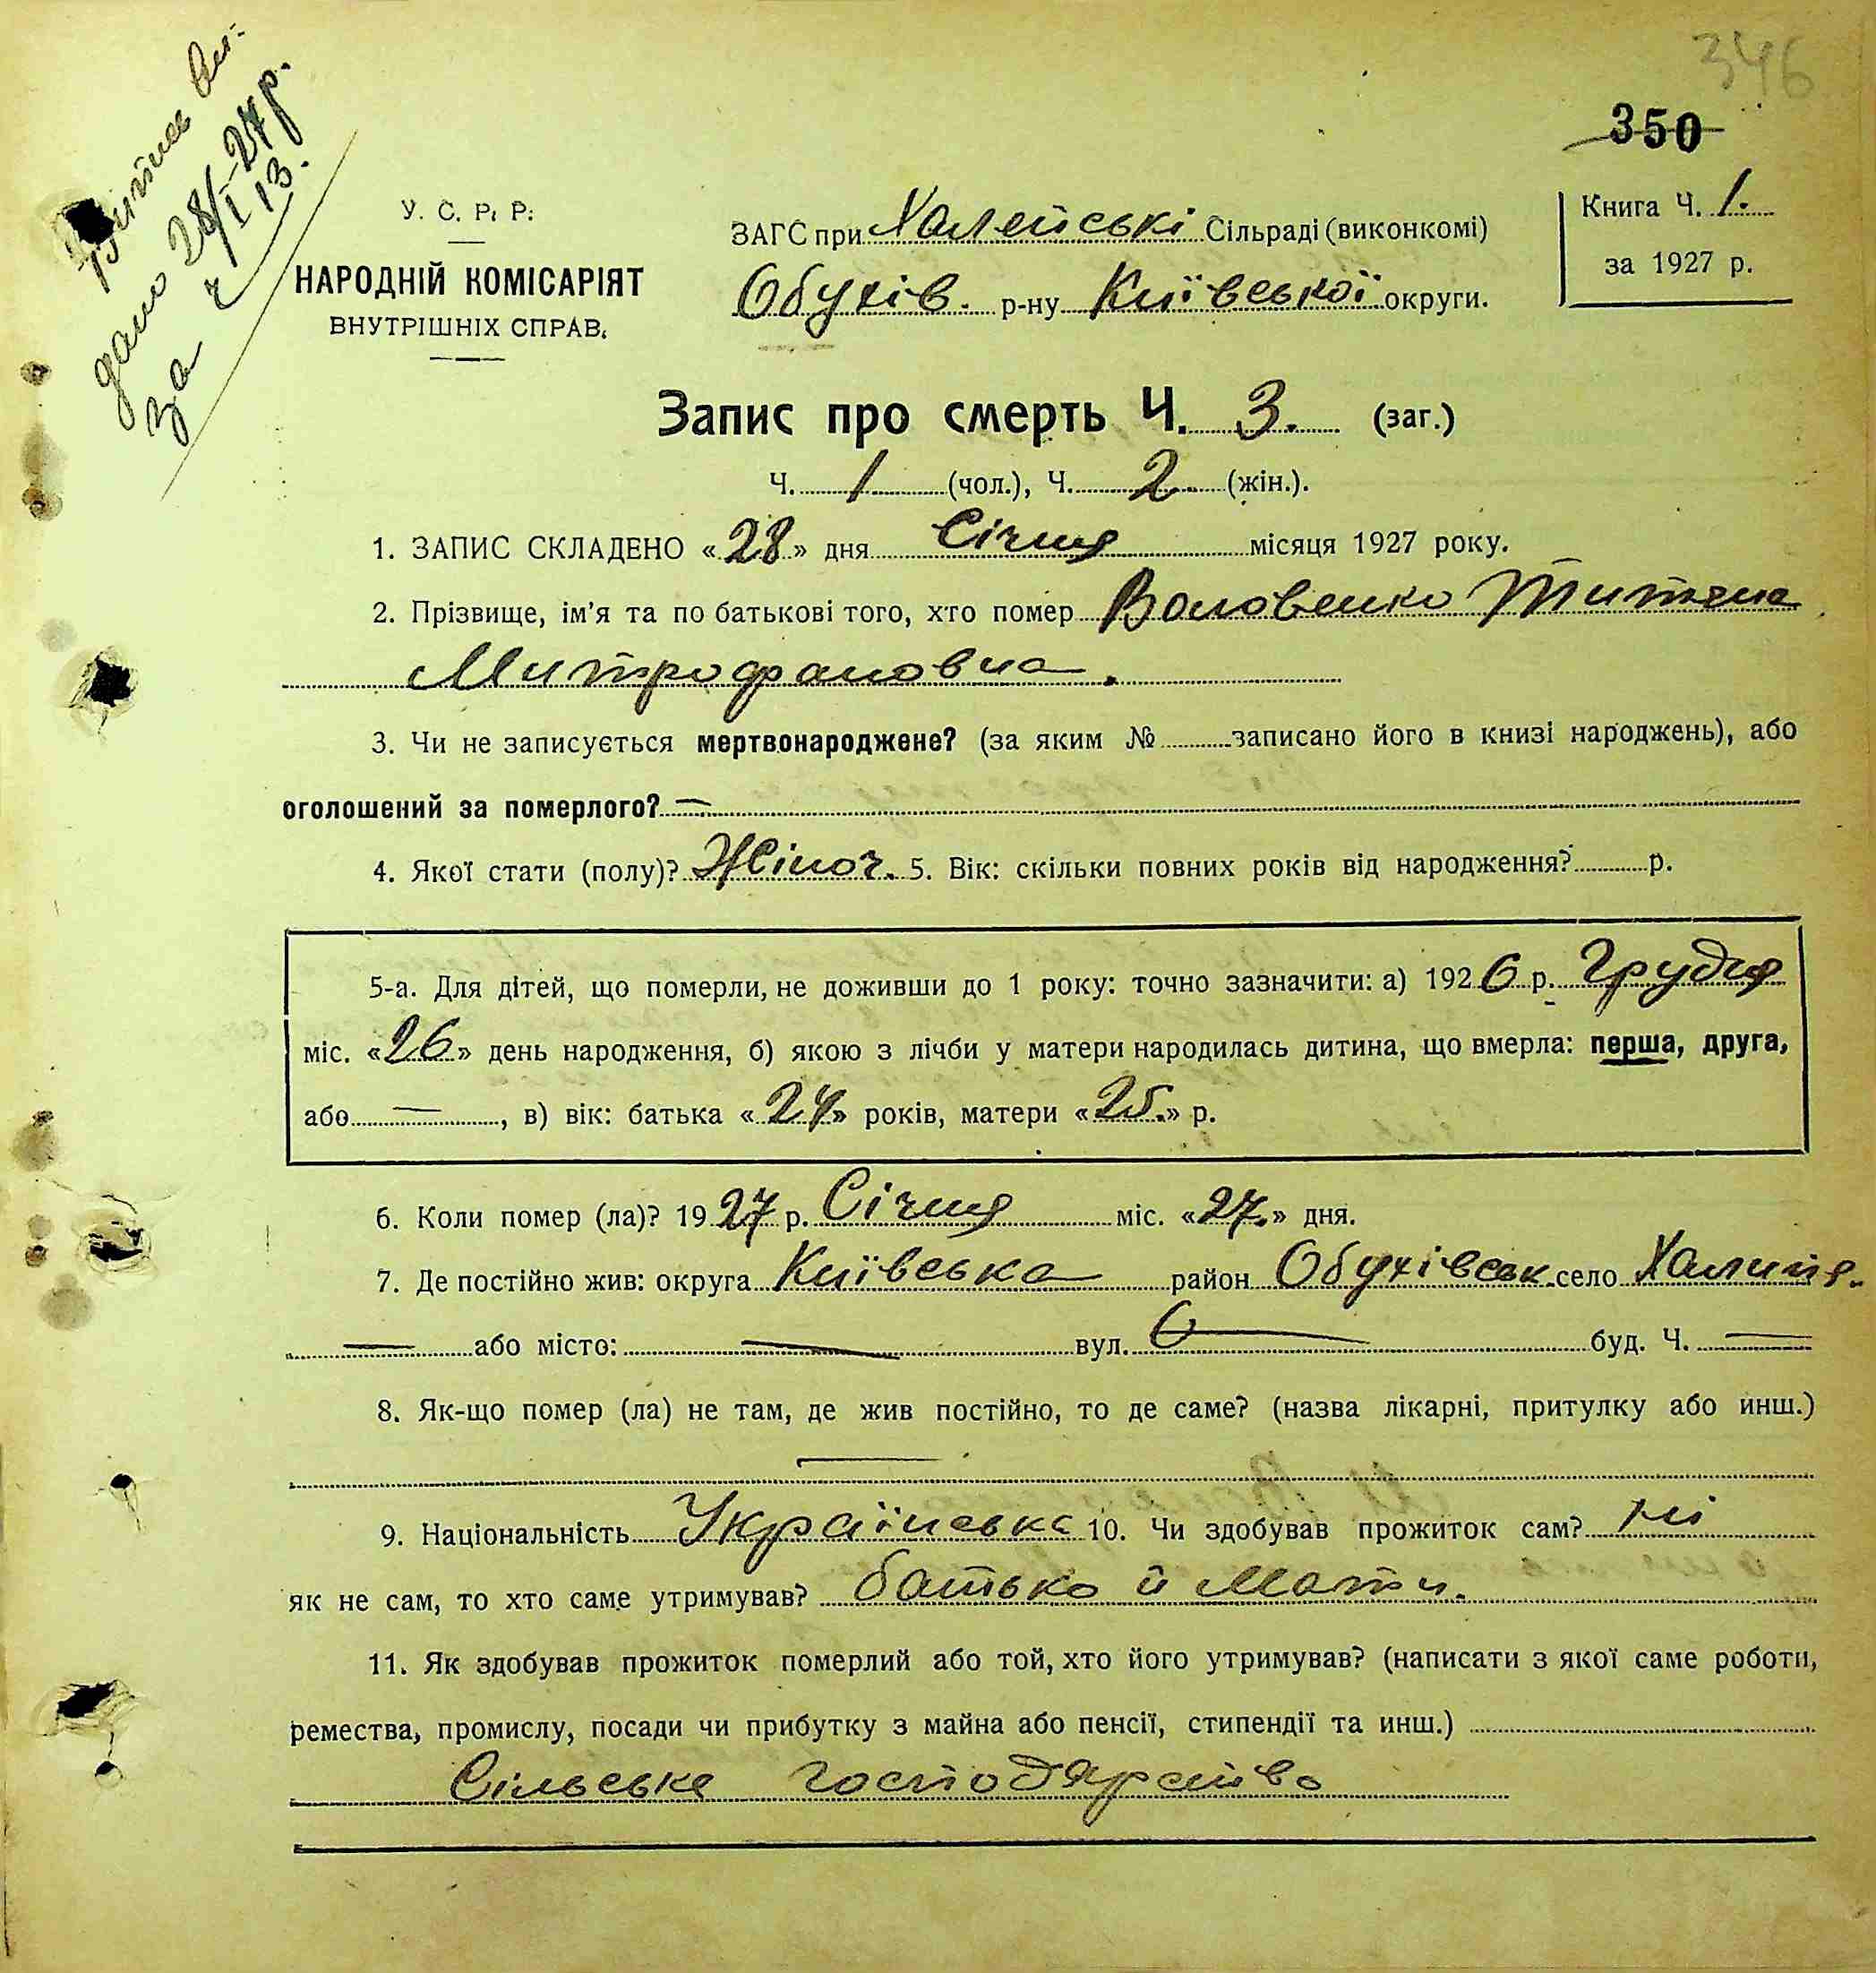 346
350
Витяг ви-
дано 28/I-27р.
за ч 13.
У. С. Р. Р.
НАРОДНІЙ КОМІСАРІЯТ
ВНУТРІШНІХ СПРАВ.
ЗАГС при Халепські Сільраді (виконкомі)
Обухів. р-ну Київської округи.
Книга Ч. 1.
за 1927 р.
Запис про смерть Ч. 3. (заг.)
Ч. 1 (чол.), Ч. 2. (жін.).
1. ЗАПИС СКЛАДЕНО «28» дня Січня місяця 1927 року.
2. Прізвище, ім'я та по батькові того, хто помер Воловенко Титяна
Митрофановна.
3. Чи не записується мертвонароджене? (за яким № записано його в книзі народжень), або
оголошений за померлого? —
4. Якої стати (полу)? Жіноч. 5. Вік: скільки повних років від народження? р.
5-а. Для дітей, що померли, не доживши до 1 року: точно зазначити: а) 1926 р. Грудня
міс. «26» день народження, б) якою з лічби у матери народилась дитина, що вмерла: перша, друга,
або —, в) вік: батька «24» років, матери «25.» р.
6. Коли помер (ла)? 1927 р. Січня міс. «27.» дня.
7. Де постійно жив: округа Київська район Обухівськ. село
— або місто: — вул. — буд. Ч. —
8. Як-що помер (ла) не там, де жив постійно, то де саме? (назва лікарні, притулку або инш.)
—
9. Національність Українська 10. Чи здобував прожиток сам? Ні
як не сам, то хто саме утримував? батько й мати.
11. Як здобував прожиток померлий або той, хто його утримував? (написати з якої саме роботи,
ремества, промислу, посади чи прибутку з майна або пенсії, стипендії та инш.)
Сільське господарство